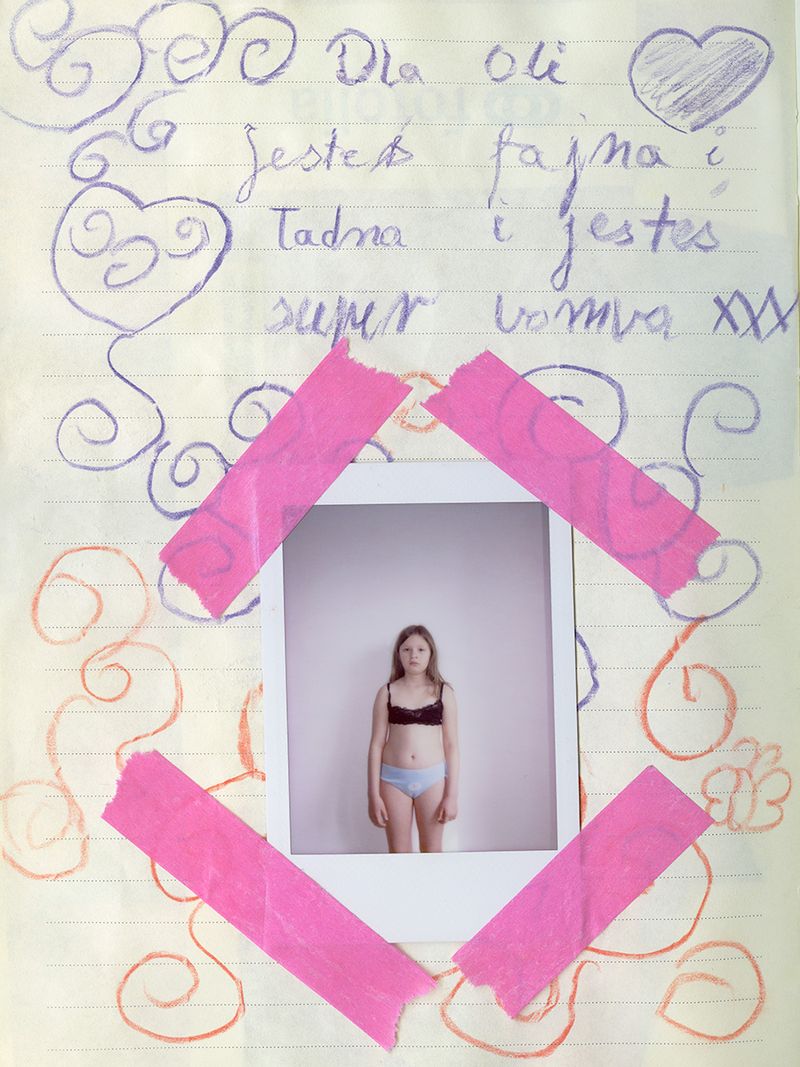 Dla Oli
jesteś fajna i
Ładna i jesteś
super bomba XXX